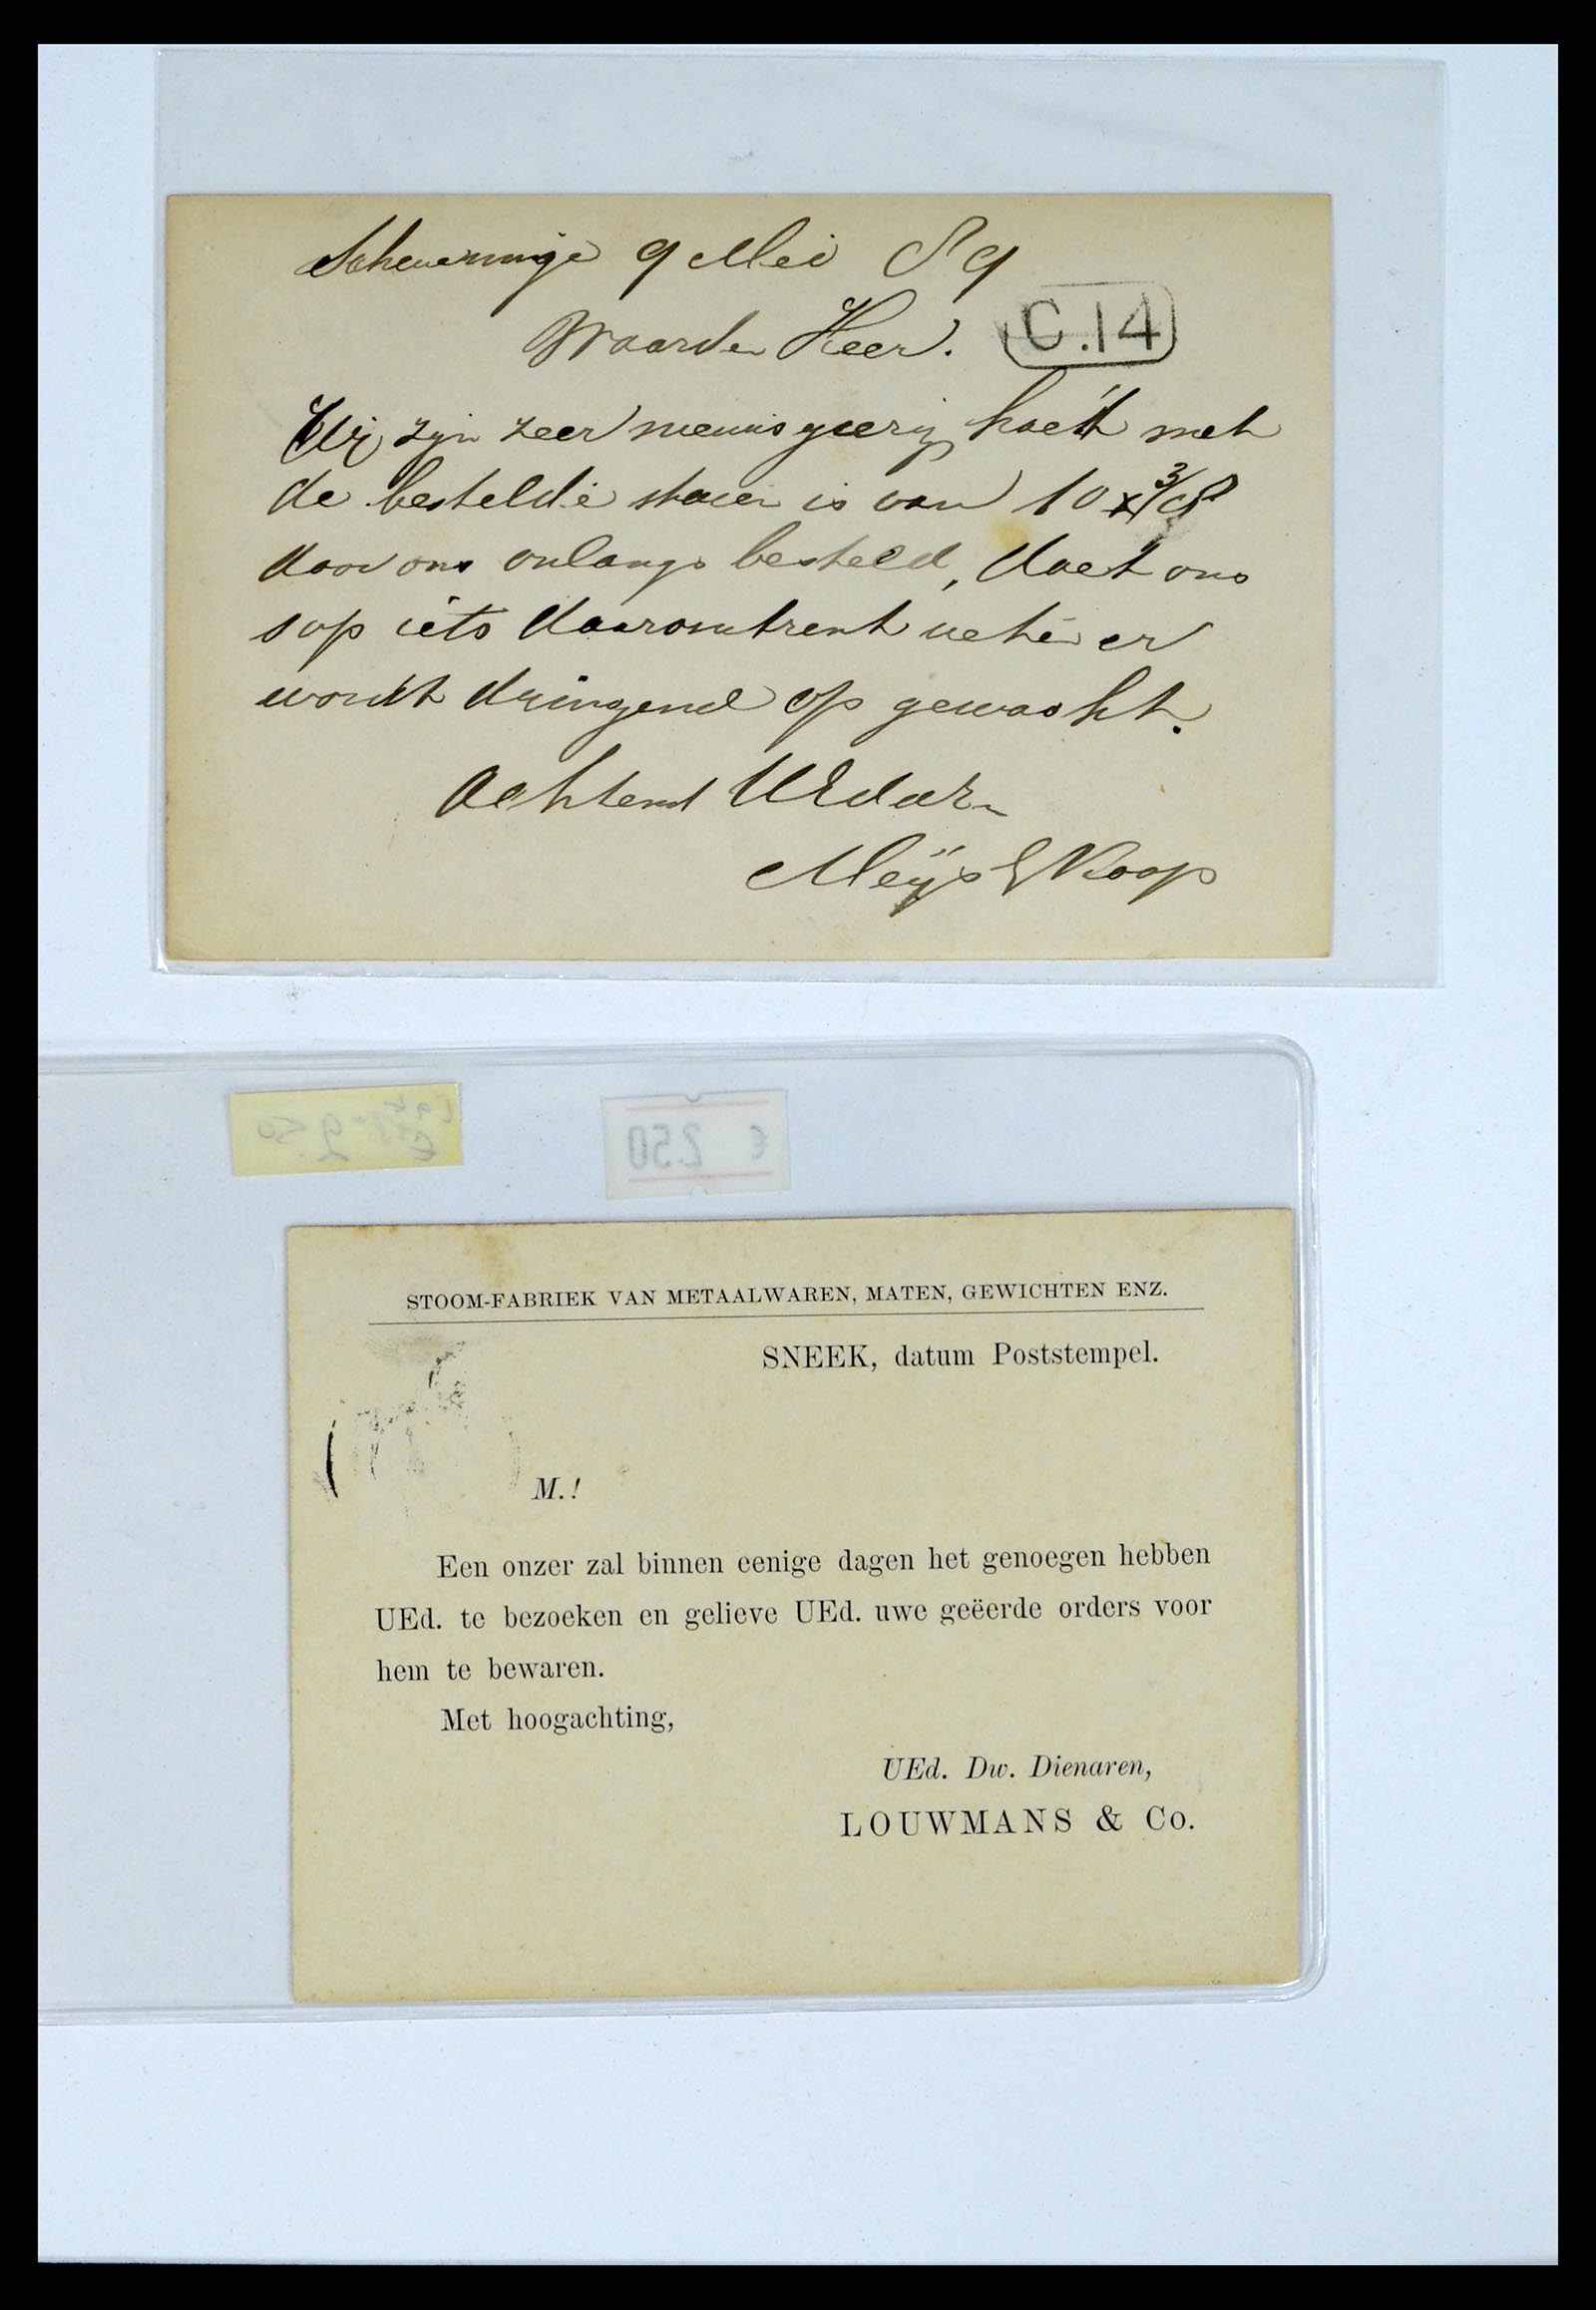 Scheveninge 9 Mei 89
Waarde Heer.
C.14
Wij zijn zeer nieuwsgierig hoe't met
de bestelde is van 10 x 3/8
door ons onlangs besteld, doet ons
s op iets daaromtrent weten er
wordt dringend op gewacht.
Achtend UEdwDr
Meijs & Koop
€ 9.50
€ 2.50
STOOM-FABRIEK VAN METAALWAREN, MATEN, GEWICHTEN ENZ.
SNEEK, datum Poststempel.
M.!
Een onzer zal binnen eenige dagen het genoegen hebben
UEd. te bezoeken en gelieve UEd. uwe geëerde orders voor
hem te bewaren.
Met hoogachting,
UEd. Dw. Dienaren,
LOUWMANS & Co.